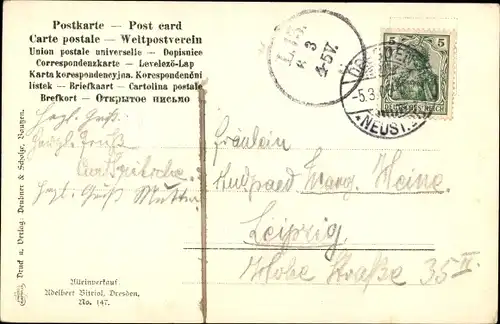 Postkarte — Post card
Carte postale — Weltpostverein
Union postale universelle — Dopisnice
Correspondenzkarte — Levelező-Lap
Karta korespondencyjna. Korespondenční
listek — Briefkaart — Cartolina postale
Brefkort — Открытое письмо
3
4-5V.
5 5
DEUTSCHES REICH
DRESDEN
-5.3.
NEUST.
Herzl. Gruß
Herzl. Gruß Mutter
Fräulein
Marg. Heine
Leipzig
Hohe Straße 35 II.
Druck u. Verlag: Deubner & Scholze, Bautzen.
Alleinverkauf
Adelbert Vitriol, Dresden.
No. 147.